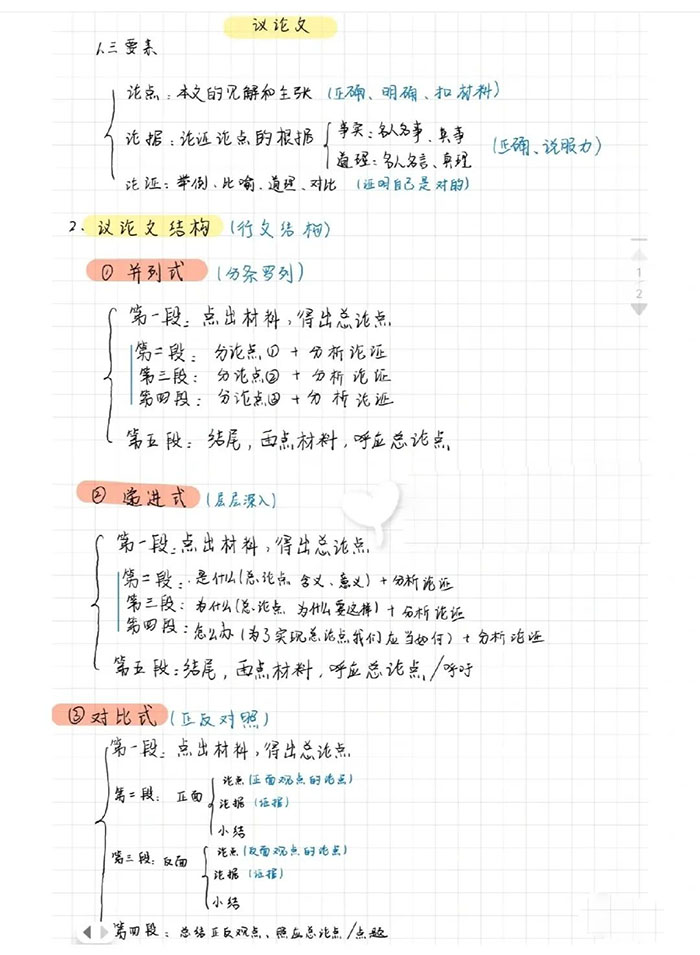 议论文
1.三要素
论点：本文的见解和主张（正确、明确、扣材料）
论据：论证论点的根据
事实：名人名事、真事
道理：名人名言、真理
（正确、说服力）
论证：举例、比喻、道理、对比（证明自己是对的）
2.议论文结构（行文结构）
① 并列式（分条罗列）
第一段：点出材料，得出总论点
第二段：分论点① + 分析论证
第三段：分论点② + 分析论证
第四段：分论点③ + 分析论证
第五段：结尾，再点材料，呼应总论点
② 递进式（层层深入）
第一段：点出材料，得出总论点
第二段：是什么（总论点 含义、意义）+ 分析论证
第三段：为什么（总论点 为什么要这样）+ 分析论证
第四段：怎么办（为了实现总论点我们应当如何）+ 分析论证
第五段：结尾，再点材料，呼应总论点/呼吁
③ 对比式（正反对照）
第一段：点出材料，得出总论点
第二段：正面
论点（正面观点的论点）
论据（证据）
小结
第三段：反面
论点（反面观点的论点）
论据（证据）
小结
第四段：总结正反观点、照应总论点/点题
1
2